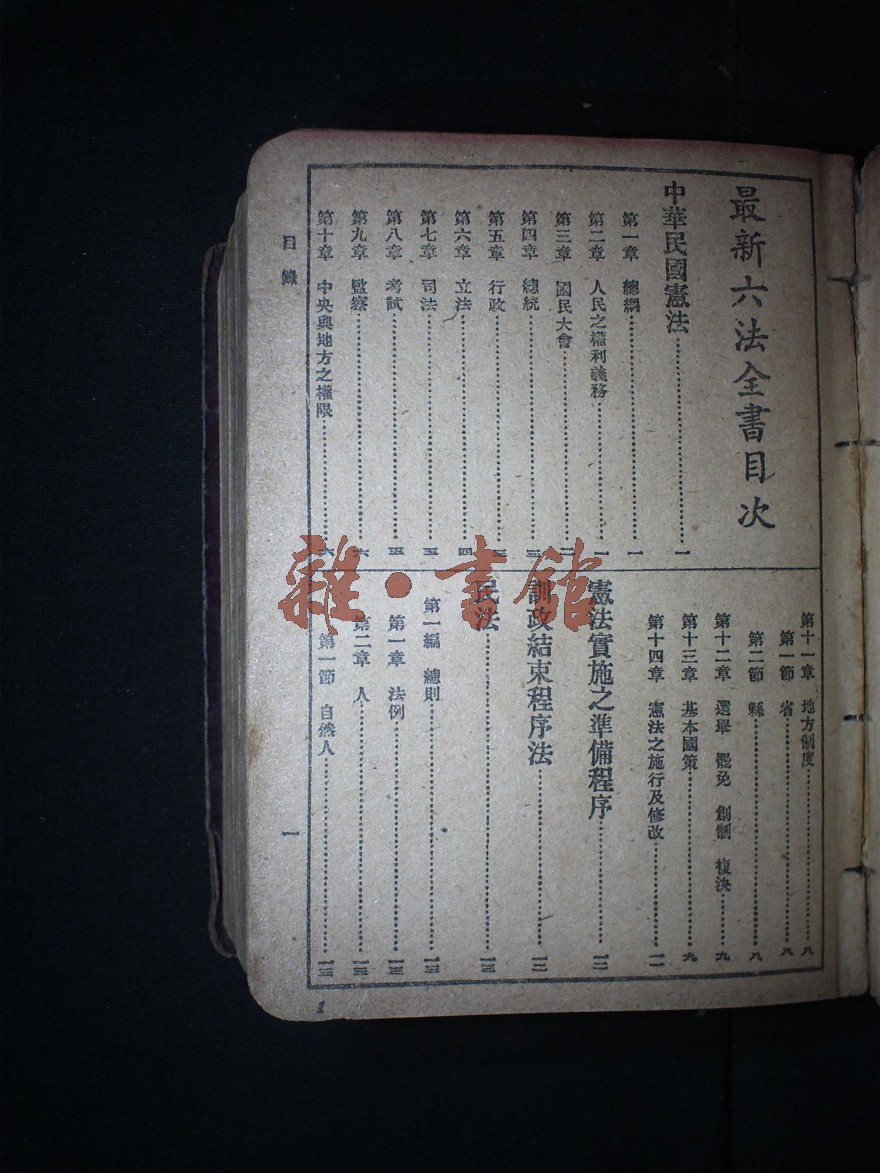 最新六法全書目次
中華民國憲法 一
第一章 總綱 一
第二章 人民之權利義務 一
第三章 國民大會 二
第四章 總統 三
第五章 行政
第六章 立法 四
第七章 司法 五
第八章 考試 五
第九章 監察 六
第十章 中央與地方之權限 六
第十一章 地方制度 八
第一節 省 八
第二節 縣 八
第十二章 選舉 罷免 創制 複決 九
第十三章 基本國策 九
第十四章 憲法之施行及修改 一一
憲法實施之準備程序 一二
訓政結束程序法 一二
民法 一三
第一編 總則 一三
第一章 法例 一三
第二章 人 一三
第一節 自然人 一三
目錄
一
1
雜·書館